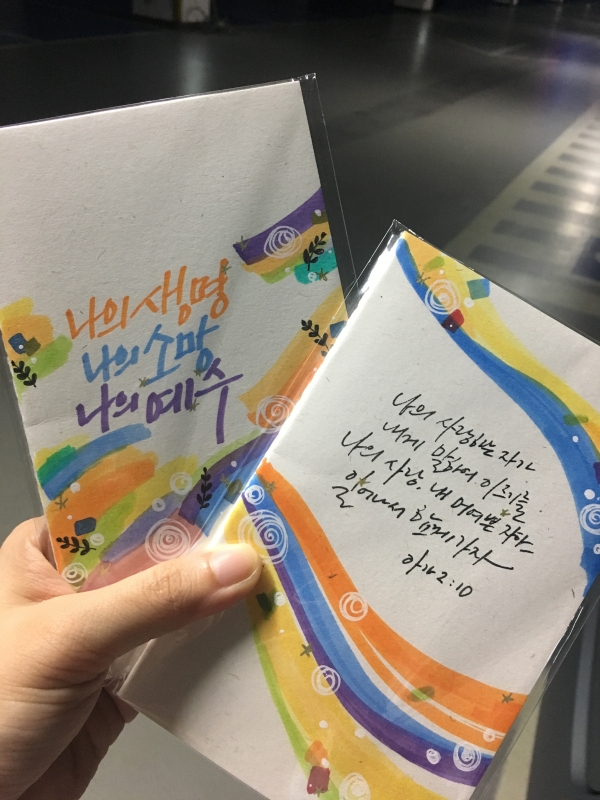 나의 생명
나의 소망
나의 예수
나의 사랑하는 자가
내게 말하여 이르기를
나의 사랑, 내 어여쁜 자야
일어나서 함께 가자
아가 2:10